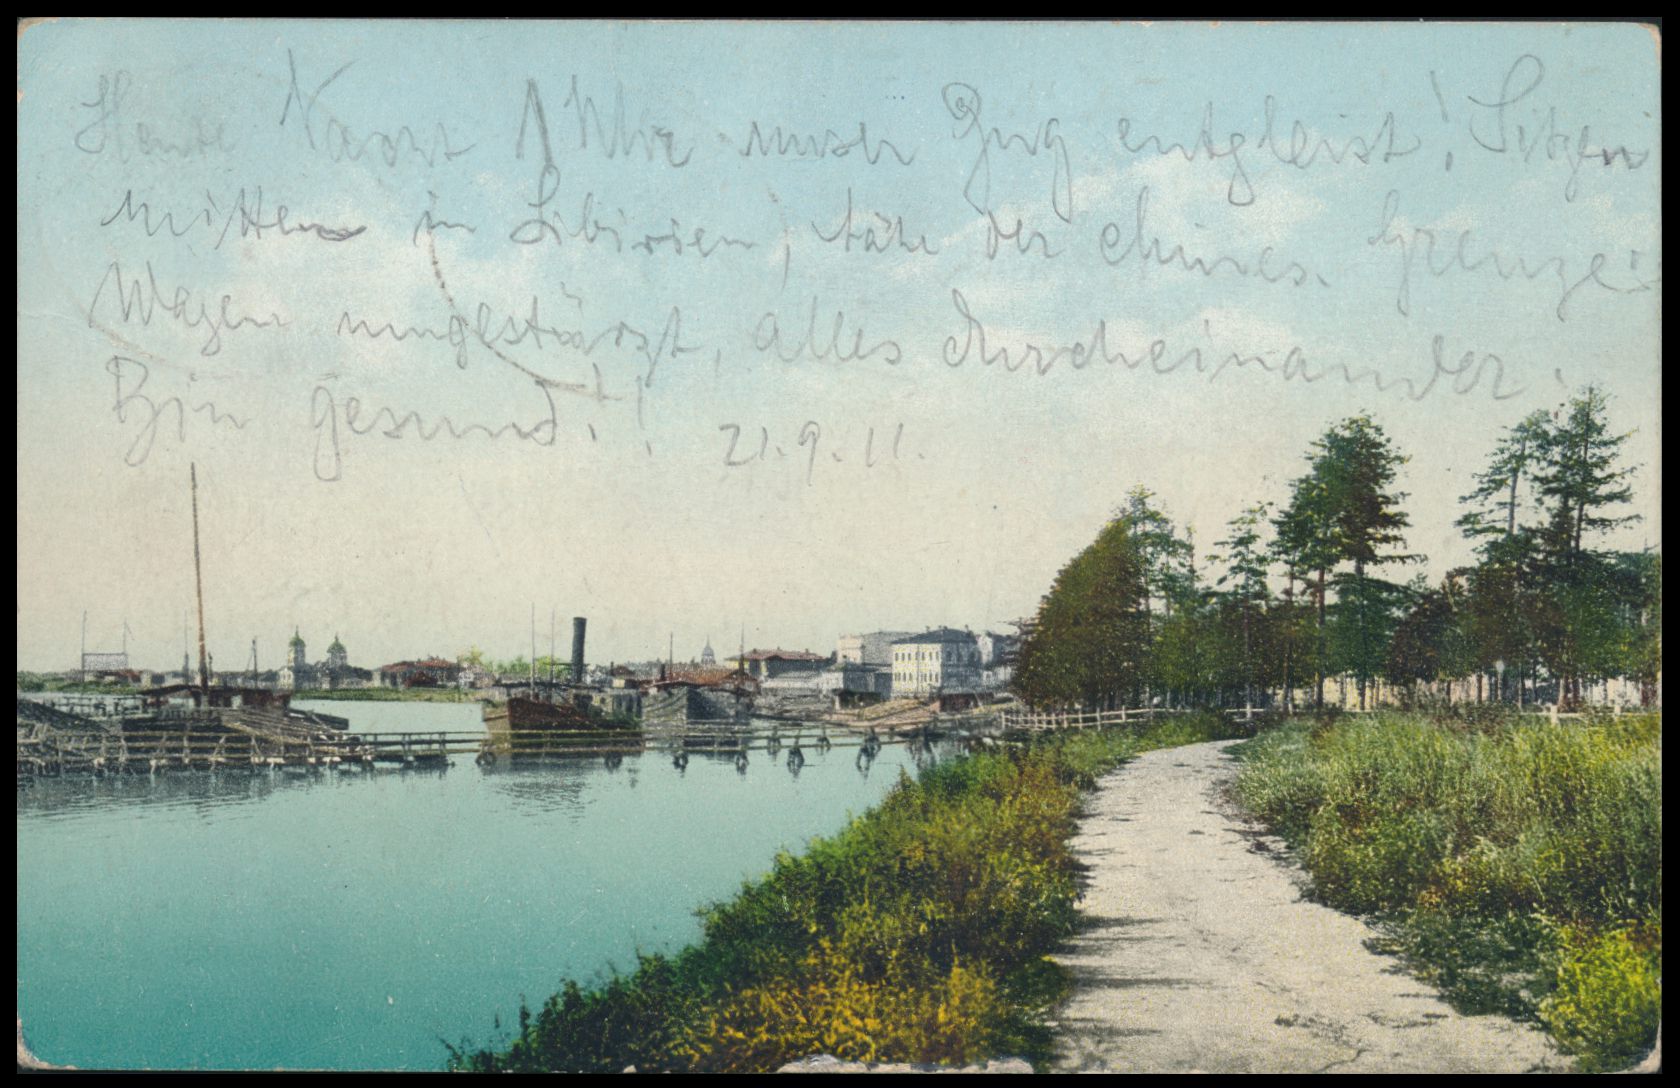 Heute Nacht 1 Uhr unser Zug entgleist! Sitzen
mitten in Sibirien, nähe der chines. Grenze:
Wagen umgestürzt, alles durcheinander.
Bin gesund!! 21.9.11.